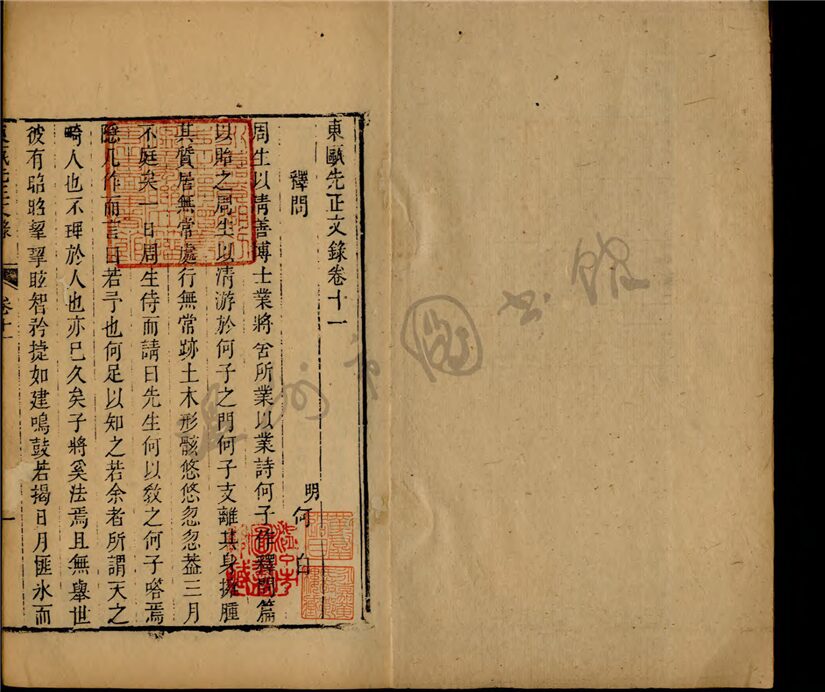 東甌先正文錄卷十一
釋問
明何白
周生以淸善博士業將舍所業以業詩何子作釋問篇
以貽之周生以淸游於何子之門何子支離其身擁腫
其質居無常處行無常跡土木形骸悠悠忽忽葢三月
不庭矣一日周生侍而請曰先生何以敎之何子嗒焉
隱几作而言曰若予也何足以知之若余者所謂天之
畸人也不理於人也亦已久矣子將奚法焉且無舉世
彼有昭昭揫揫眩智矜捷如建鳴鼓若揭日月匪氷而
東甌先正文錄
卷十一
一
溫州市圖書館